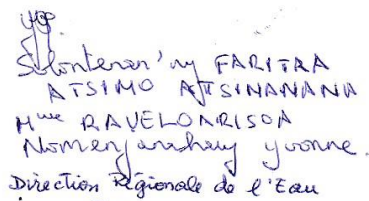 Solontenan'ny FARITRA
ATSIMO ATSINANANA
Mme RAVELOARISOA
Nomenjanahary Yvonne.
Direction Régionale de l'Eau